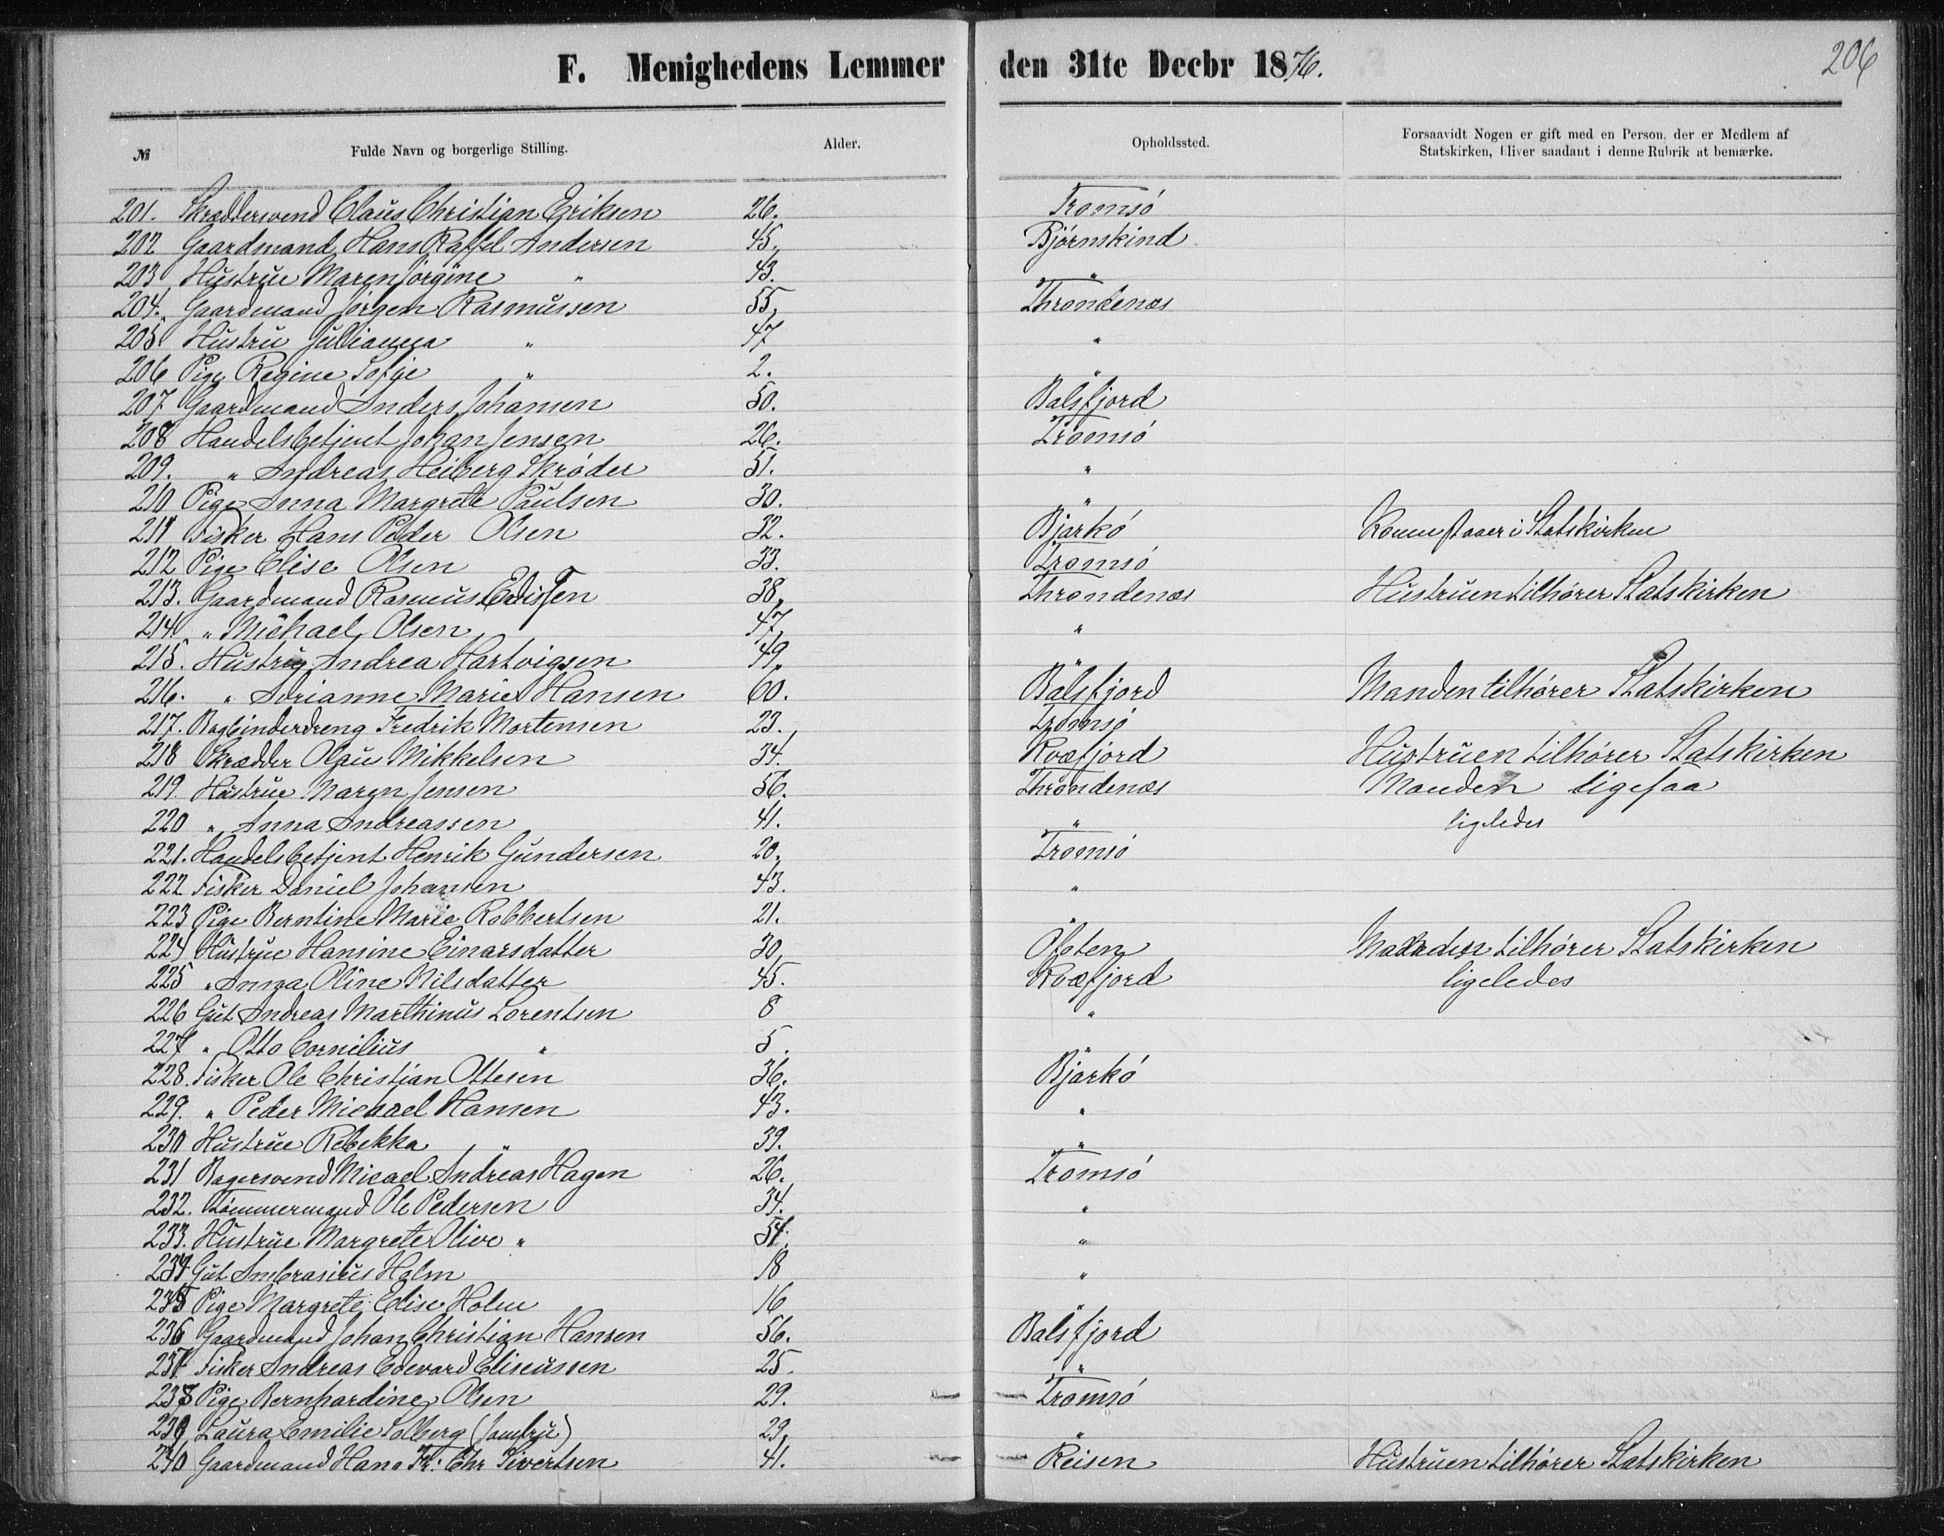 F. Menighedens Lemmer den 31te Decbr 1876. 206
№ Fulde Navn og borgerlige Stilling. Alder. Opholdssted. Forsaavidt Nogen er gift med en Person, der er Medlem af
Statskirken, bliver saadant i denne Rubrik at bemærke.
201. Skræddersvend Claus Christian Eriksen 26. Tromsó
202 Gaardmand Hans Raffel Andersen 45. Bjørnskind
203 Hustrue Maren Jorgine " 43. "
204. Gaardmand Jørgen Rasmussen 55. Throndenæs
205 Hustru Julianna " 47 "
206 Pige Regine Sofie " 2. "
207 Gaardmand Anders Johansen 50. Balsfjord
208 Handelsbetjent Johan Jensen 26. Tromsó
209. " Andreas Heiberg Skrøder 51. "
210 Pige Anna Margrete Paulsen 30. "
211 Fisker Hans Peder Olsen 32. Bjarkó Konen staaer i Statskirken
212 Pige Elise Olsen 33. Tromsó
213. Gaardmand Rasmus 38. Throndenæs Hustruen tilhører Statskirken
214. " Michael Olsen 47. "
215. Hustru Andrea Hartvigsen 49. "
216. " Adrianne Marie Hansen 60. Balsfjord Manden tilhører Statskirken
217. Bogbinderdreng Fredrik Mortensen 23. Tromsó
218 Skrædder Olaus Mikkelsen 34. Kvæfjord Hustruen tilhører Statskirken
219. Hustrue Maren Jensen 56. Throndenæs Manden ligesaa
220 " Anna Andreassen 41. " ligeledes
221. Handelsbetjent Henrik Gundersen 20. Tromsó
222 Fisker Daniel Johansen 43. "
223 Pige Berntine Marie Robbertsen 21. "
224 Hustrue Hansine Einarsdatter 30. Ofoten Manden tilhører Statskirken
225 " Anna Oline Nilsdatter 45. Kvæfjord ligeledes
226 Gut Andreas Marthinus Lorentsen 8 "
227 " Otto Cornilius " 5. "
228. Fisker Ole Christian Ottesen 36. Bjarkó
229. " Peder Michael Hansen 43. "
230 Hustrue Rebekka " 39. "
231 Bagersvend Micael Andreas Hagen 26. Tromsó
232. Tømmermand Ole Pedersen 34. "
233. Hustrue Margrete Olive " 54. "
234 Gut Ambrasius Holm 18 "
235 Pige Margrete Elise Holm 16 "
236 Gaardmand Johan Christian Hansen 56. Balsfjord
237 Fisker Andreas Edevard Eliseussen 25. "
238 Pige Bernhardine Olsen 29. Tromsó
239 Laura Emilie Solberg (Jomfru) 29. "
240 Gaardmand Hans Fr. Chr Sivertsen 41. Reisen Hustruen tilhører Statskirken